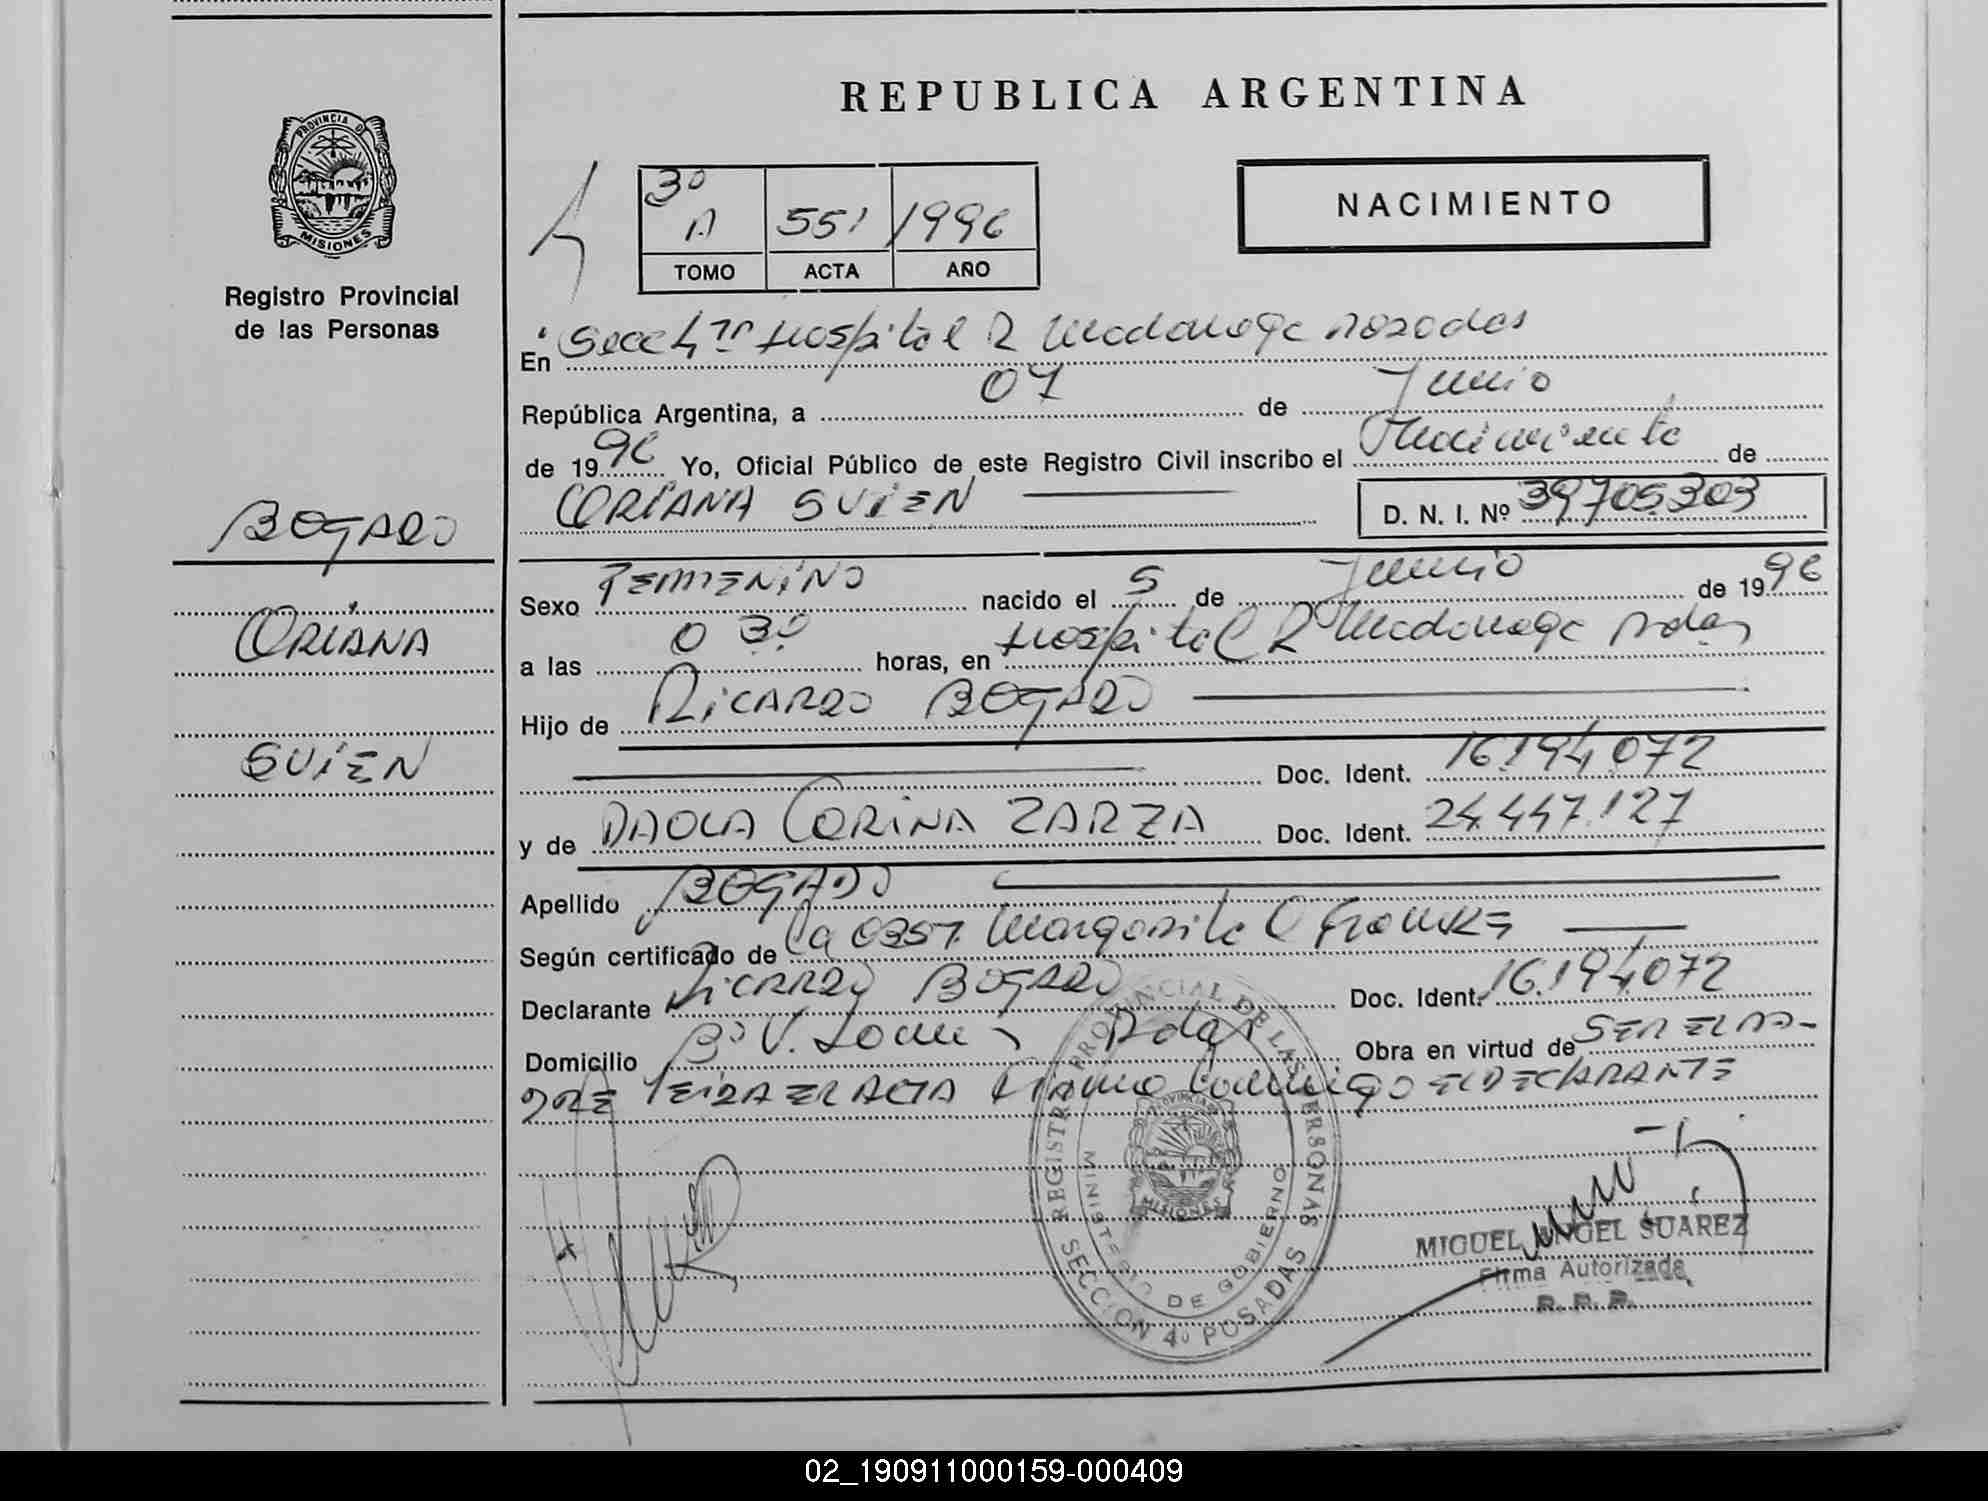 REPUBLICA ARGENTINA
PROVINCIA DE
MISIONES
Registro Provincial
de las Personas
3º
A 551 1996
TOMO ACTA AÑO
NACIMIENTO
En Secc 4ta Hospital R Madariaga Posadas
República Argentina, a 07 de Junio
de 1996 Yo, Oficial Público de este Registro Civil inscribo el Nacimiento de
ORIANA SUIEN D. N. I. Nº 39705303
BOGADO
ORIANA
SUIEN
Sexo FEMENINO nacido el 5 de Junio de 1996
a las 0 30 horas, en Hospital R Madariaga Pdas
Hijo de RICARDO BOGADO
Doc. Ident. 16.194.072
y de PAOLA CORINA ZARZA Doc. Ident. 24.447.127
Apellido BOGADO
Según certificado de la Obst. Margarita
Declarante RICARDO BOGADO Doc. Ident. 16.194072
Domicilio Bº V. Pdas Obra en virtud de SER EL PA-
DRE LEIDA EL ACTA Firma Conmigo EL DECLARANTE
REGISTRO PROVINCIAL DE LAS PERSONAS
MINISTERIO DE GOBIERNO
PROVINCIA DE
MISIONES
SECCION 4º POSADAS
MIGUEL ANGEL SUAREZ
Firma Autorizada
R. P. P.
02_190911000159-000409